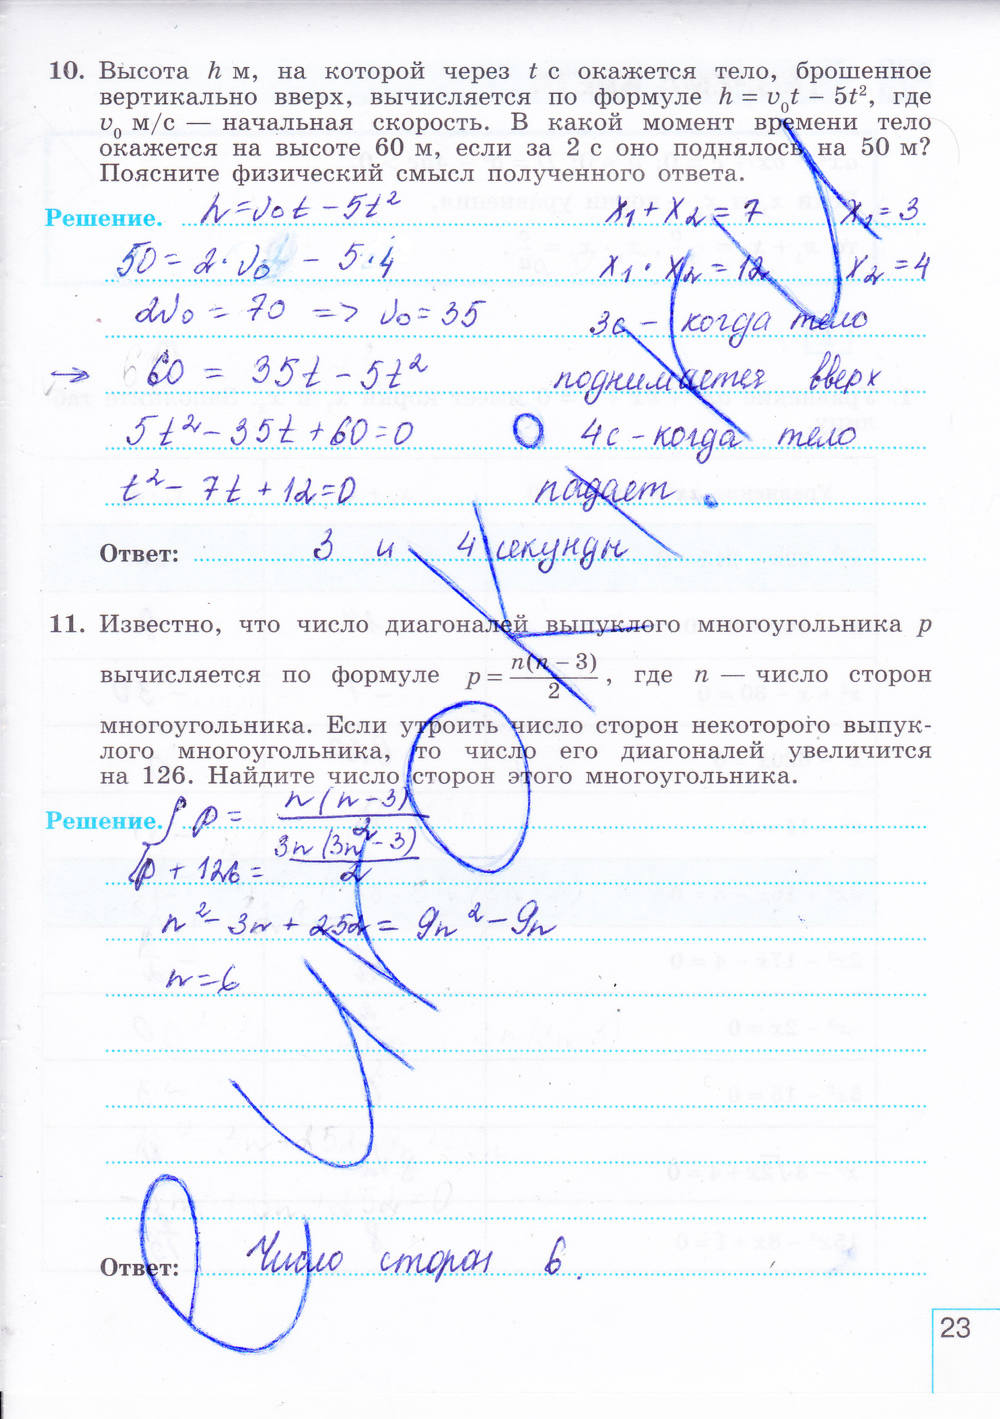 10. Высота h м, на которой через t с окажется тело, брошенное
вертикально вверх, вычисляется по формуле h = v₀t − 5t², где
v₀ м/с — начальная скорость. В какой момент времени тело
окажется на высоте 60 м, если за 2 с оно поднялось на 50 м?
Поясните физический смысл полученного ответа.
Решение. h = v₀t − 5t² x₁ + x₂ = 7 x₁ = 3
50 = 2 · v₀ − 5 · 4 x₁ · x₂ = 12 x₂ = 4
2v₀ = 70 => v₀ = 35 3с – когда тело
→ 60 = 35t − 5t² поднимается вверх
5t² − 35t + 60 = 0 4с – когда тело
t² − 7t + 12 = 0 падает
Ответ: 3 и 4 секунды
11. Известно, что число диагоналей выпуклого многоугольника p
вычисляется по формуле p = n(n − 3)/2, где n — число сторон
многоугольника. Если утроить число сторон некоторого выпук-
лого многоугольника, то число его диагоналей увеличится
на 126. Найдите число сторон этого многоугольника.
Решение. p = n(n−3)/2
p + 126 = 3n(3n−3)/2
n² − 3n + 252 = 9n² − 9n
n = 6
Ответ: Число сторон 6.
23